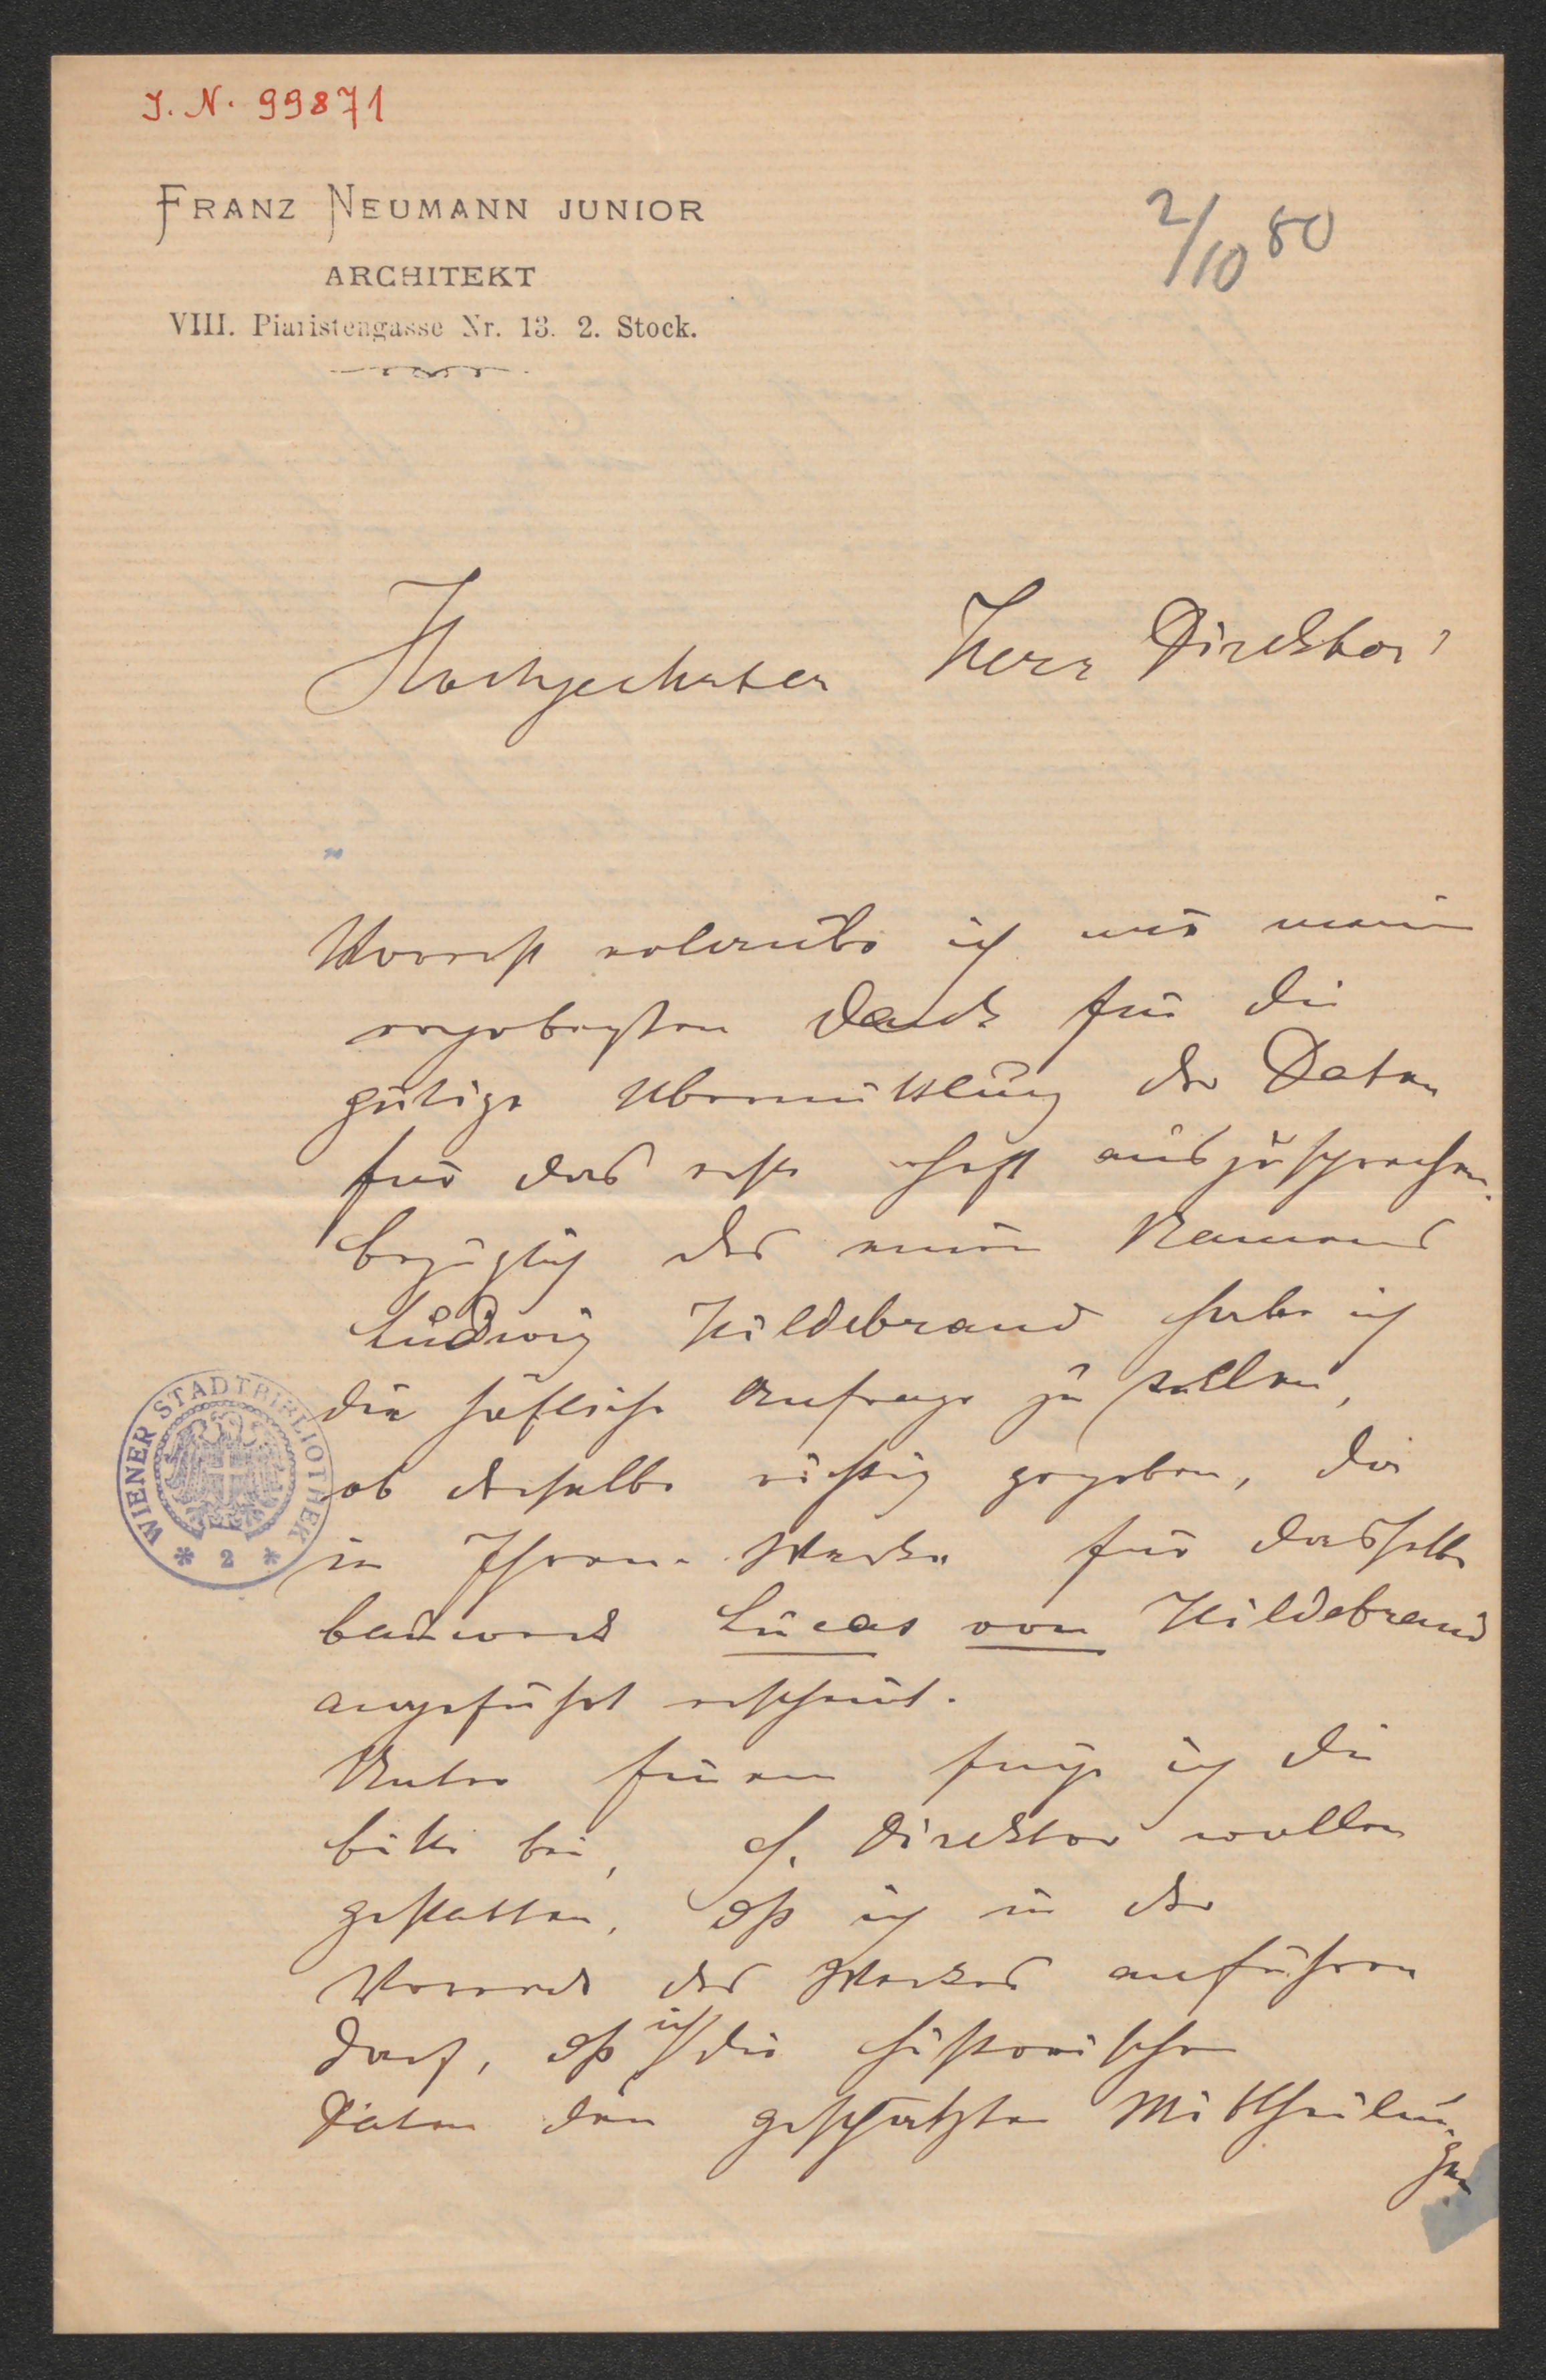 J. N. 99871
FRANZ NEUMANN JUNIOR
ARCHITEKT
VIII. Piaristengasse Nr. 13. 2. Stock.
2/10 80
Hochgeehrter Herr Direktor!
Vorerst erlaube ich mir meinen
ergebensten Dank für die
gütige Übermittlung der Daten
für das erste Heft auszusprechen.
bezüglich des Namens
Ludwig Hildebrand habe ich
die höfliche Anfrage zu stellen,
ob derselbe richtig gegeben, da
in Ihrem Werke für dasselbe
bauwerk Lucas von Hildebrand
angeführt erscheint.
füge ich die
bitte bei, H. Direktor wollen
gestatten, dß ich in der
Vorrede des Werkes anführen
darf, dß ich die historischen
Daten den geschätzten Mittheilun-
gen
WIENER STADTBIBLIOTHEK
* 2 *